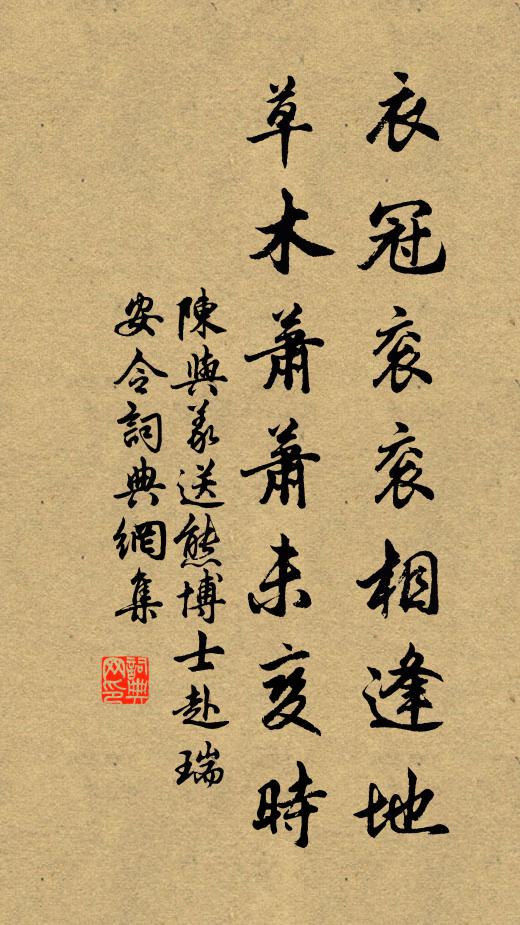 衣冠衮衮相逢地
草木萧萧未变时
陳與義送熊博士赴瑞
安令詞典網集
詞典網印